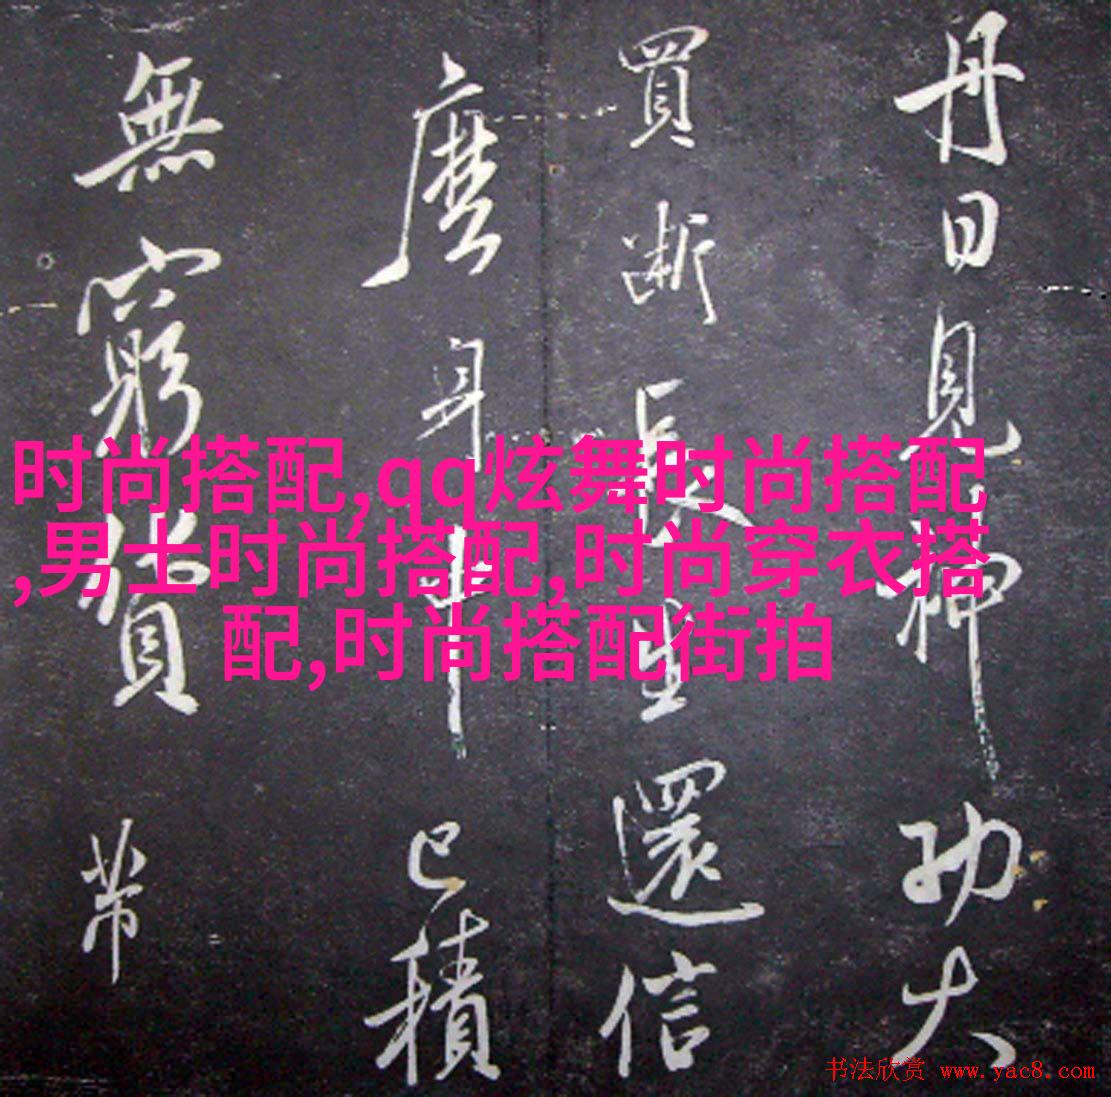 丹日見神功大
買斷長生還信
麼身中已積
無窮貨帶
时尚搭配,qq炫舞时尚搭配
,男士时尚搭配,时尚穿衣搭
配,时尚搭配街拍
书法欣赏 www.yac8.com